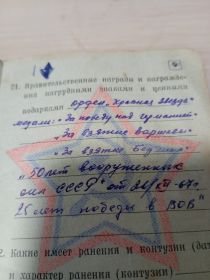 21. Правительственные награды и награжде-
ния нагрудными знаками и ценными
подарками орден „Красная звезда"
медали: „За победу над Германией"
„За взятие Варшавы"
„За взятие Берлина"
„50 лет вооруженных
сил СССР" от 26/XII-67г.
25 лет победы в ВОВ"
2. Какие имеет ранения и контузии (да
и характер ранения (контузии)